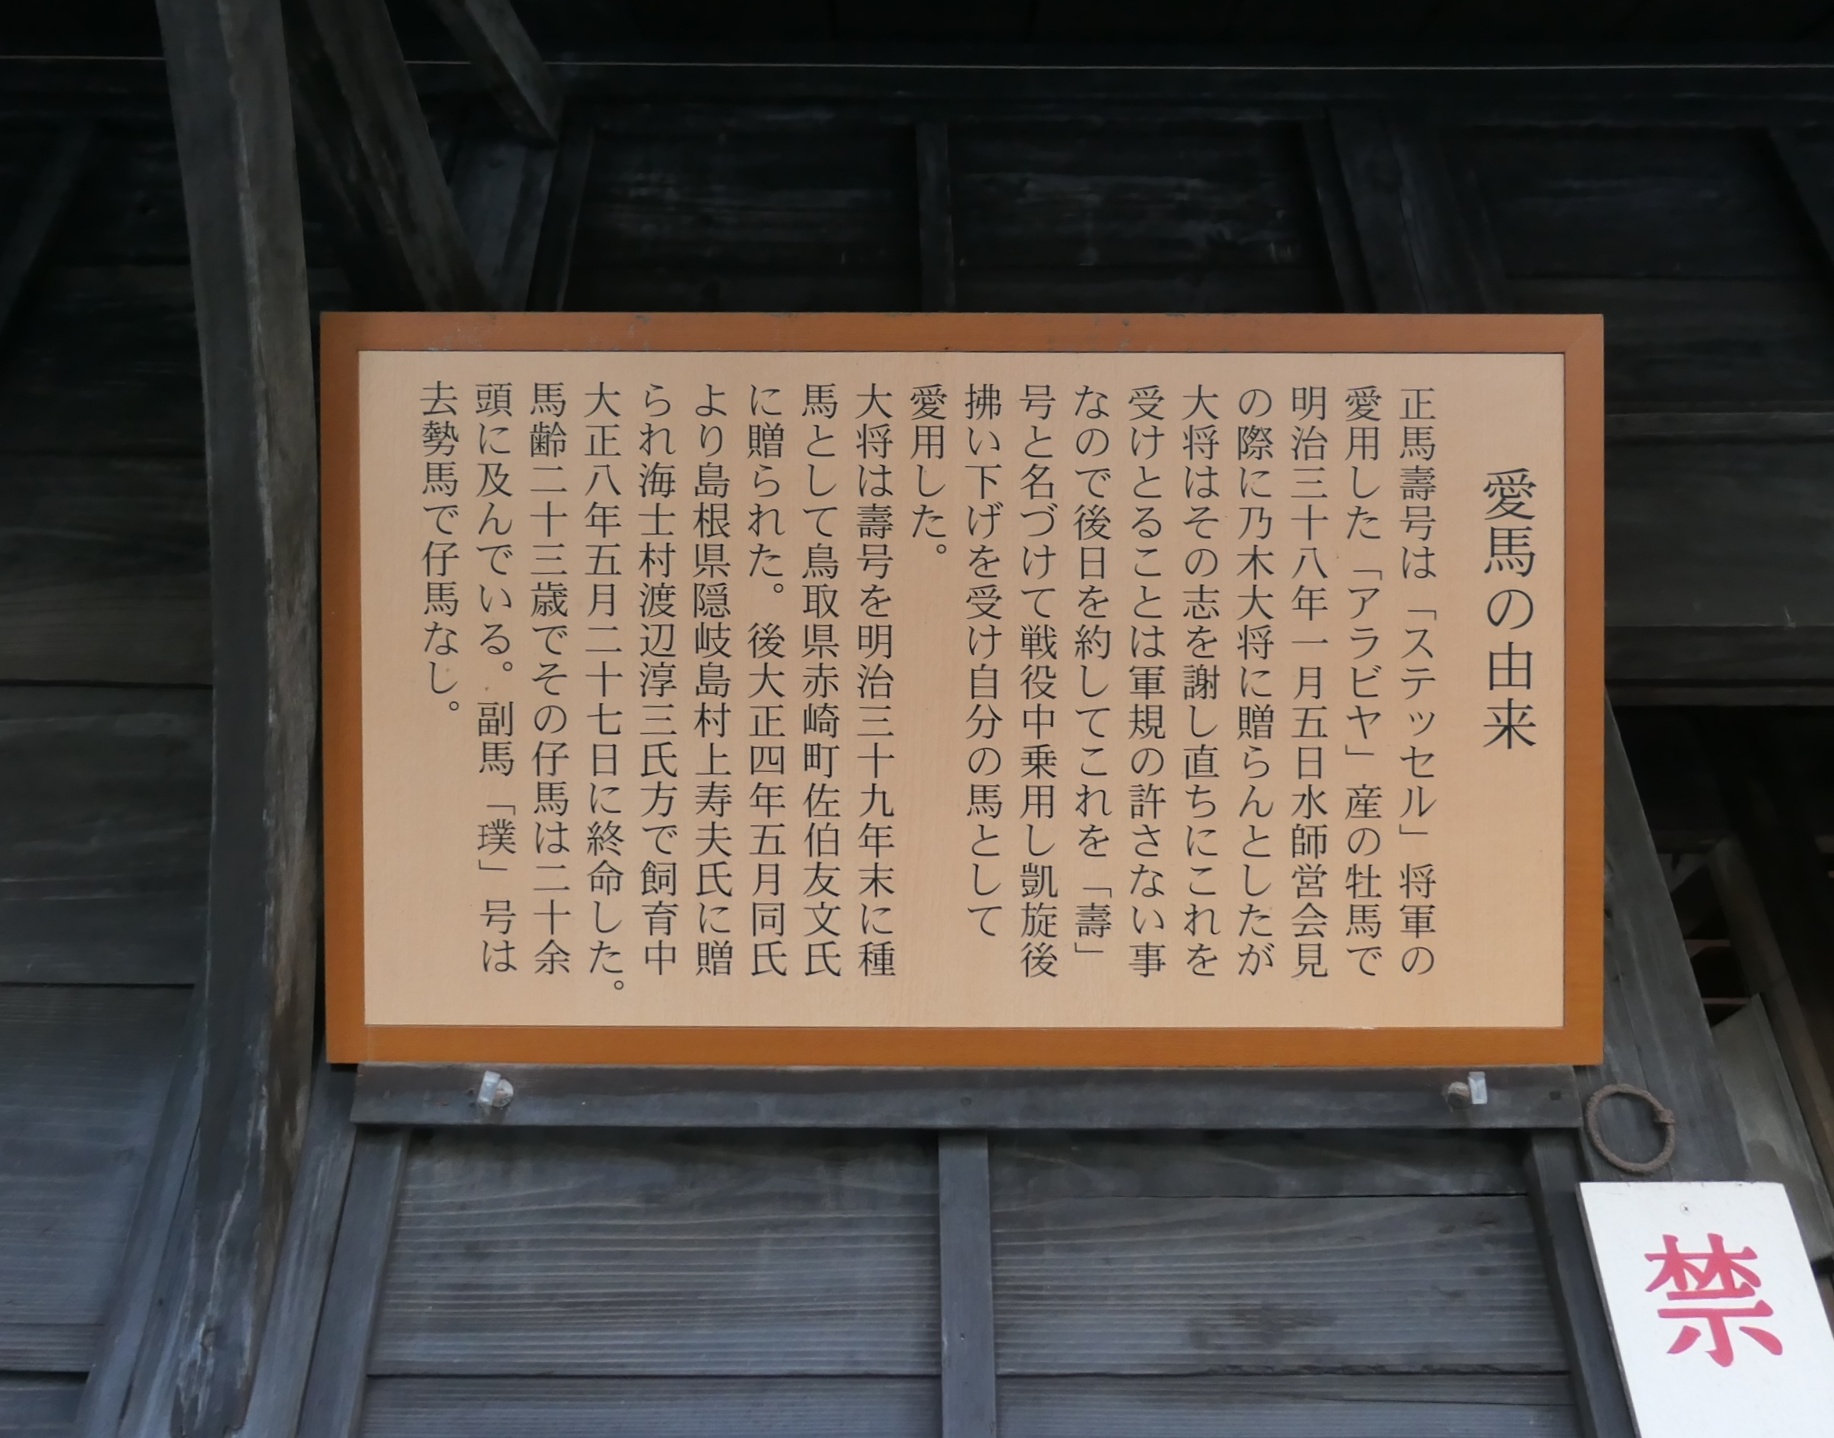 愛馬の由来
正馬壽号は「ステッセル」将軍の
愛用した「アラビヤ」産の牡馬で
明治三十八年一月五日水師営会見
の際に乃木大将に贈らんとしたが
大将はその志を謝し直ちにこれを
受けとることは軍規の許さない事
なので後日を約してこれを「壽」
号と名づけて戦役中乗用し凱旋後
拂い下げを受け自分の馬として
愛用した。
大将は壽号を明治三十九年末に種
馬として鳥取県赤崎町佐伯友文氏
に贈られた。後大正四年五月同氏
より島根県隠岐島村上寿夫氏に贈
られ海士村渡辺淳三氏方で飼育中
大正八年五月二十七日に終命した。
馬齢二十三歳でその仔馬は二十余
頭に及んでいる。副馬「璞」号は
去勢馬で仔馬なし。
禁